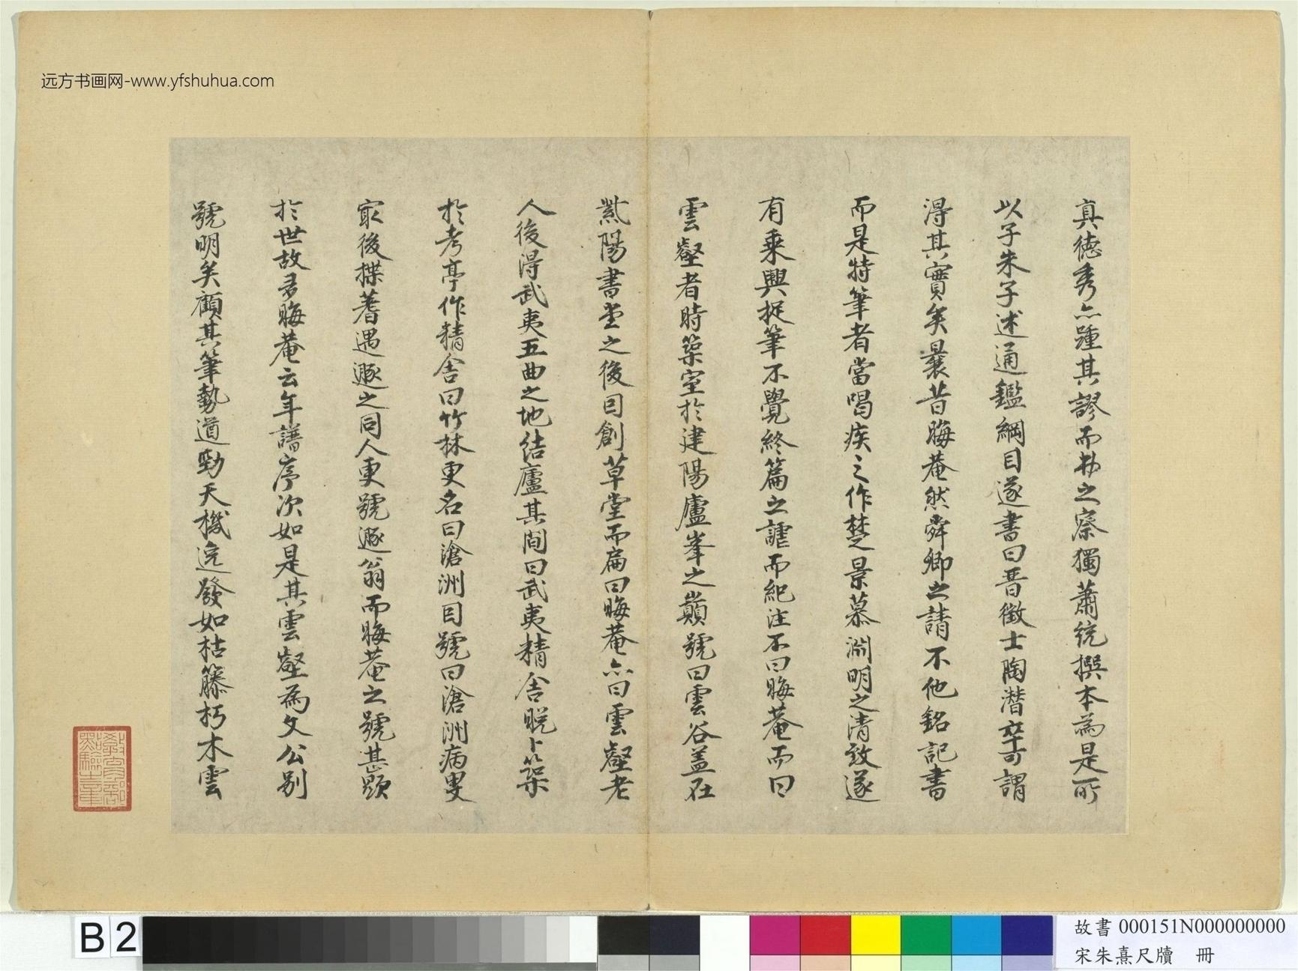 远方书画网-www.yfshuhua.com
真德秀亦踵其謬而弗之察獨蕭統撰本為是所
以子朱子述通鑑綱目遂書曰晉徵士陶潛卒可謂
得其實矣曩昔晦菴然舜卿之請不他銘記書
而是特筆者當暍疾之作楚景慕淵明之清致遂
有乘興捉筆不覺終篇之謔而紀注不曰晦菴而曰
雲壑者時築室於建陽廬峯之巔號曰雲谷蓋在
紫陽書堂之後因創草堂而扁曰晦菴亦曰雲壑老
人後得武夷五曲之地結廬其間曰武夷精舍晚卜築
於考亭作精舍曰竹林更名曰滄洲因號曰滄洲病叟
最後揲蓍遇遯之同人更號遯翁而晦菴之號甚顯
於世故多晦菴云年譜序次如是其雲壑為文公別
號明矣顧其筆勢遒勁天機迅發如枯籐朽木雲
B2
故書 000151N000000000
宋朱熹尺牘 冊